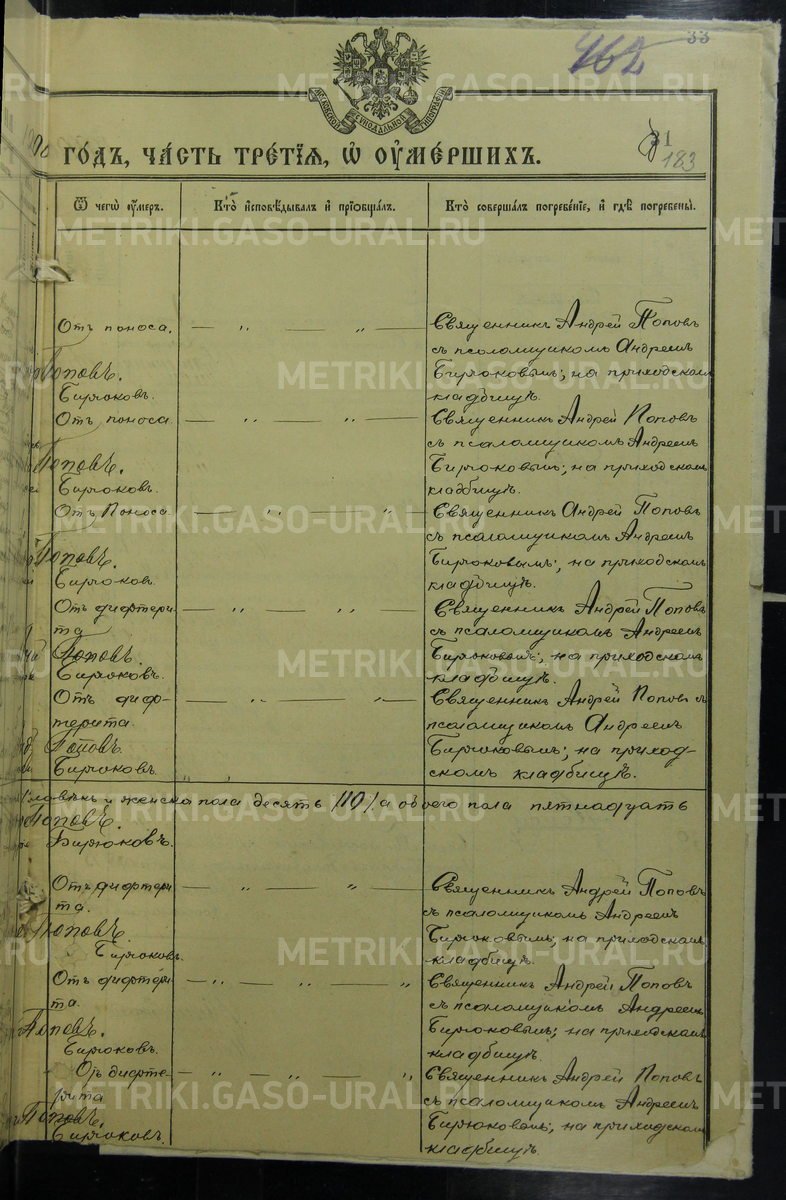 33
462
МОСКОВСКОЙ СѴНОДАЛЬНОЙ ТИПОГРАФІИ
ГОДЪ, ЧАСТЬ ТРЕТІЯ, Ѿ ОУМЕРШИХЪ.
183
Ѿ чегѡ оумеръ.
Кто исповѣдывалъ и пріобщалъ.
Кто совершалъ погребеніе, и гдѣ погребены.
Отъ поноса. — „ — „ — Священникъ Андрей Поповъ
съ псаломщикомъ Андреемъ
Поповъ. Бирюковымъ; на приходскомъ
Бирюковъ. кладбищѣ.
Отъ поноса. — „ — „ — Священникъ Андрей Поповъ
съ псаломщикомъ Андреемъ
Поповъ. Бирюковымъ; на приходскомъ
Бирюковъ. кладбищѣ.
Отъ Поноса — „ — „ — Священникъ Андрей Поповъ
съ псаломщикомъ Андреемъ
Поповъ. Бирюковымъ; на приходскомъ
Бирюковъ. кладбищѣ.
Отъ дифтери- — „ — „ — Священникъ Андрей Поповъ
та съ псаломщикомъ Андреемъ
Поповъ. Бирюковымъ; на приходскомъ
Бирюковъ. кладбищѣ.
Отъ диф- — „ — „ — Священникъ Андрей Поповъ съ
терита. псаломщикомъ Андреемъ
Поповъ. Бирюковымъ; на приход-
Бирюковъ. скомъ кладбищѣ.
и женска пола десять /10/ а обоего пола пятнадцать
Поповъ.
Бирюковъ.
Отъ дифтери — „ — „ — Священникъ Андрей Поповъ
та. съ псаломщикомъ Андреемъ
Поповъ. Бирюковымъ; на приходскомъ
Бирюковъ. кладбищѣ.
Отъ дифтери — „ — „ — „ Священникъ Андрей Поповъ
та. съ псаломщикомъ Андреемъ
Поповъ. Бирюковымъ; на приходскомъ
Бирюковъ. кладбищѣ.
Отъ дифте- — „ — „ — „ Священникъ Андрей Поповъ
рита съ псаломщикомъ Андреемъ
Поповъ. Бирюковымъ; на приходскомъ
Бирюковъ. кладбищѣ.
METRIKI.GASO-URAL.RU